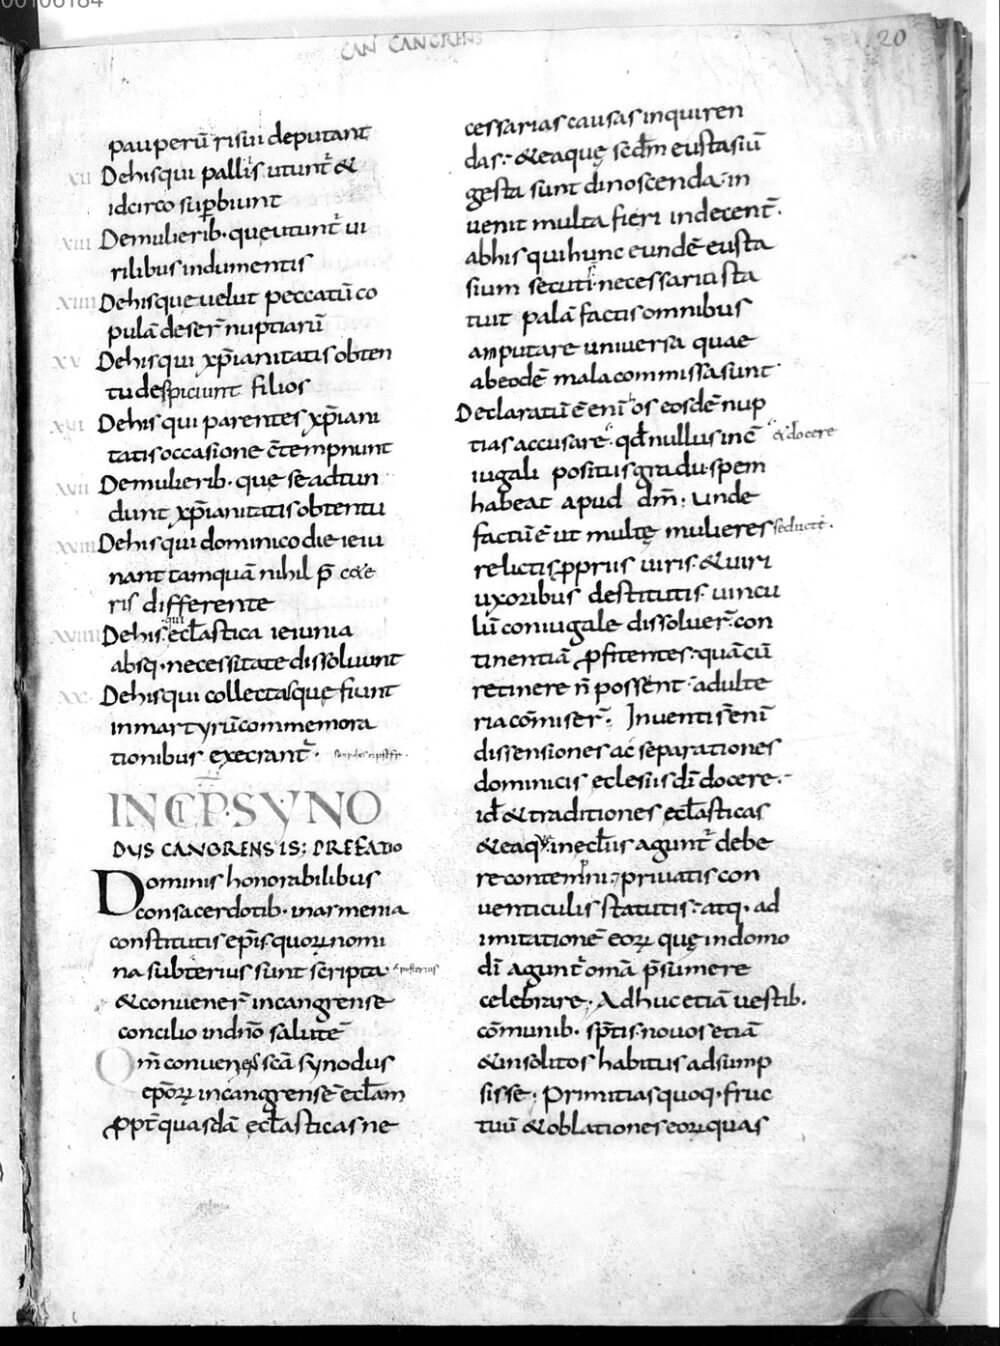 00106184
CAN CANGRENS
20
pauperū risui deputant
XII Dehisqui pallis utunt̄ &
idcirco supbiunt
XIII Demulierib· queutunt̄ ui
rilibusindumentis
XIIII Dehisqueuelut peccatū co
pulā deser̄ nuptiarū
XV Dehisqui xp̄ianitatisobten
tu despiciunt filios
XVI Dehisqui parentes xp̄iani
tatisoccasione c̄tempnunt
XVII Demulierib· que seadtun
dunt xp̄ianitatisobtentu
XVIII Dehisqui dominico die ieiu
nant tamquā nihil p̄ cete
ris differente
XVIIII Dehis qui ecl̄astica ieiunia
absq· necessitate dissoluunt
XX Dehisqui collectasque fiunt
inmartyrū commemora
tionibus execrant̄·
INCP·SYNO
DUS CANGRENSIS; PREFATIO
Dominis honorabilibus
consacerdotib· inarmenia
constitutis ep̄is quorꝝ nomi
na subterius sunt scripta·
& conuener̄ incangrense
concilio indn̄o salutē
Qm̄ conuenes sc̄a synodus
ep̄orꝝ incangrensē ecl̄am
ꝓpt̄ quasdā ecl̄asticas ne
cessarias causas inquiren
das· & eaquę secd̄m eustasiū
gesta sunt dinoscenda· in
uenit multa fieri indecent̄·
abhis qui hunc eundē eusta
sium secuti· necessario sta
tuit palā factis omnibus
amputare uniuersa quae
abeodē mala commissa sunt
Declaratū ē enī os eosdē nup
tias accusare· qd̄ nullus inc̄ & docere
iugali positus gradu spem
habeat apud dm̄; unde
factū ē ut multę mulieres seducte·
relictis ꝓpriis uiris· & uiri
uxoribus destitutis· uincu
lū coniugale dissoluer̄· con
tinentiā ꝓfitentes· quā cū
retinere n̄ possent· adulte
ria cōmiser̄· Inuenti s̄ enī
dissensiones ac separationes
dominicis eclesiis dī docere·
id& traditiones ecl̄asticas
& eaque inecl̄iis agunt̄ debe
re contemni; priuatis con
uenticulis statutis· atq· ad
imitationē eorꝝ quę indomo
dī agunt̄ omā p̄sumere
celebrare· Adhuc etiā uestib·
cōmunib· sp̄tis nouos etiā
& insolitos habitus adsump
sisse· Primitias quoq· fruc
tuū & oblationes eorꝝ quas